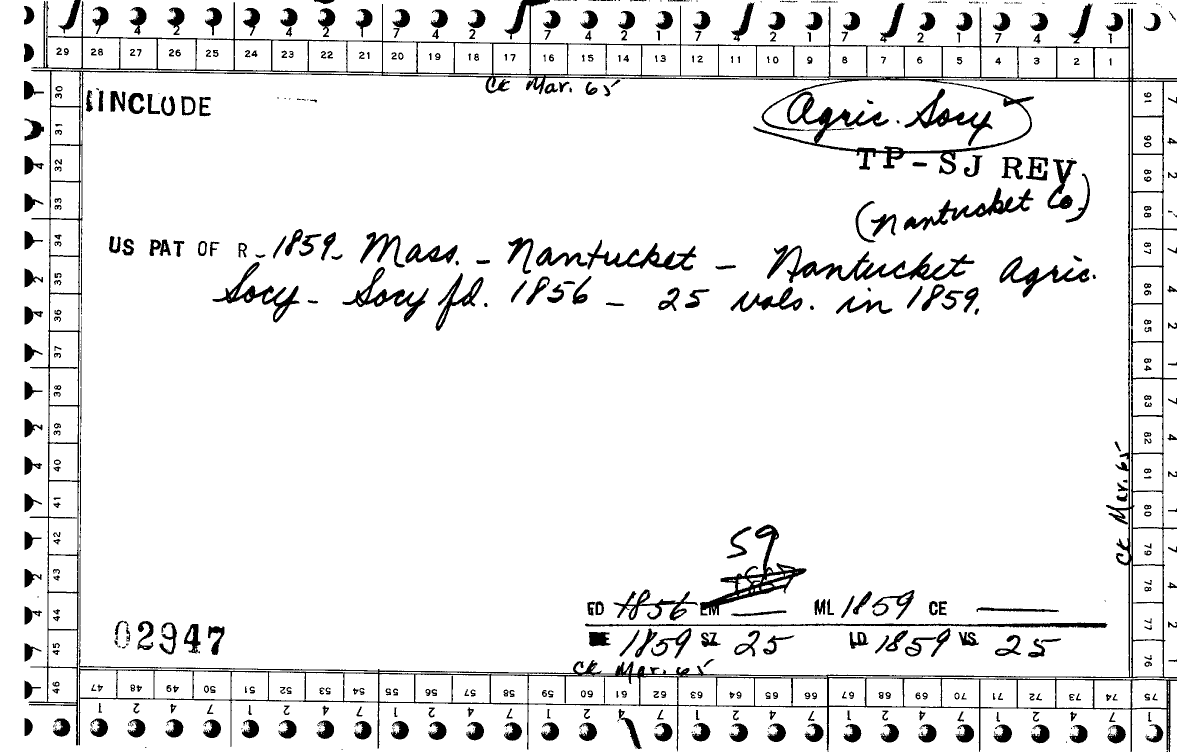 7 4 2 1 7 4 2 1 7 4 2 1 7 4 2 1 7 4 2 1 7 4 2 1 7 4 2 1
29 28 27 26 25 24 23 22 21 20 19 18 17 16 15 14 13 12 11 10 9 8 7 6 5 4 3 2 1
Ck Mar. 65
INCLUDE
Agric. Socy
TP-SJ REV
(Nantucket Co.)
US PAT OF R - 1859 - Mass. - Nantucket - Nantucket Agric.
Socy - Socy fd. 1856 - 25 vols. in 1859.
59
1857
FD 1856 EM ML 1859 CE
DE 1859 SZ 25 LD 1859 VS 25
02947
Ck Mar. 65
Ck Mar. 65
30 31 32 33 34 35 36 37 38 39 40 41 42 43 44 45 46
91 90 89 88 87 86 85 84 83 82 81 80 79 78 77 76 75
47 48 49 50 51 52 53 54 55 56 57 58 59 60 61 62 63 64 65 66 67 68 69 70 71 72 73 74 75
1 2 4 7 1 2 4 7 1 2 4 7 1 2 4 7 1 2 4 7 1 2 4 7 1 2 4 7 1